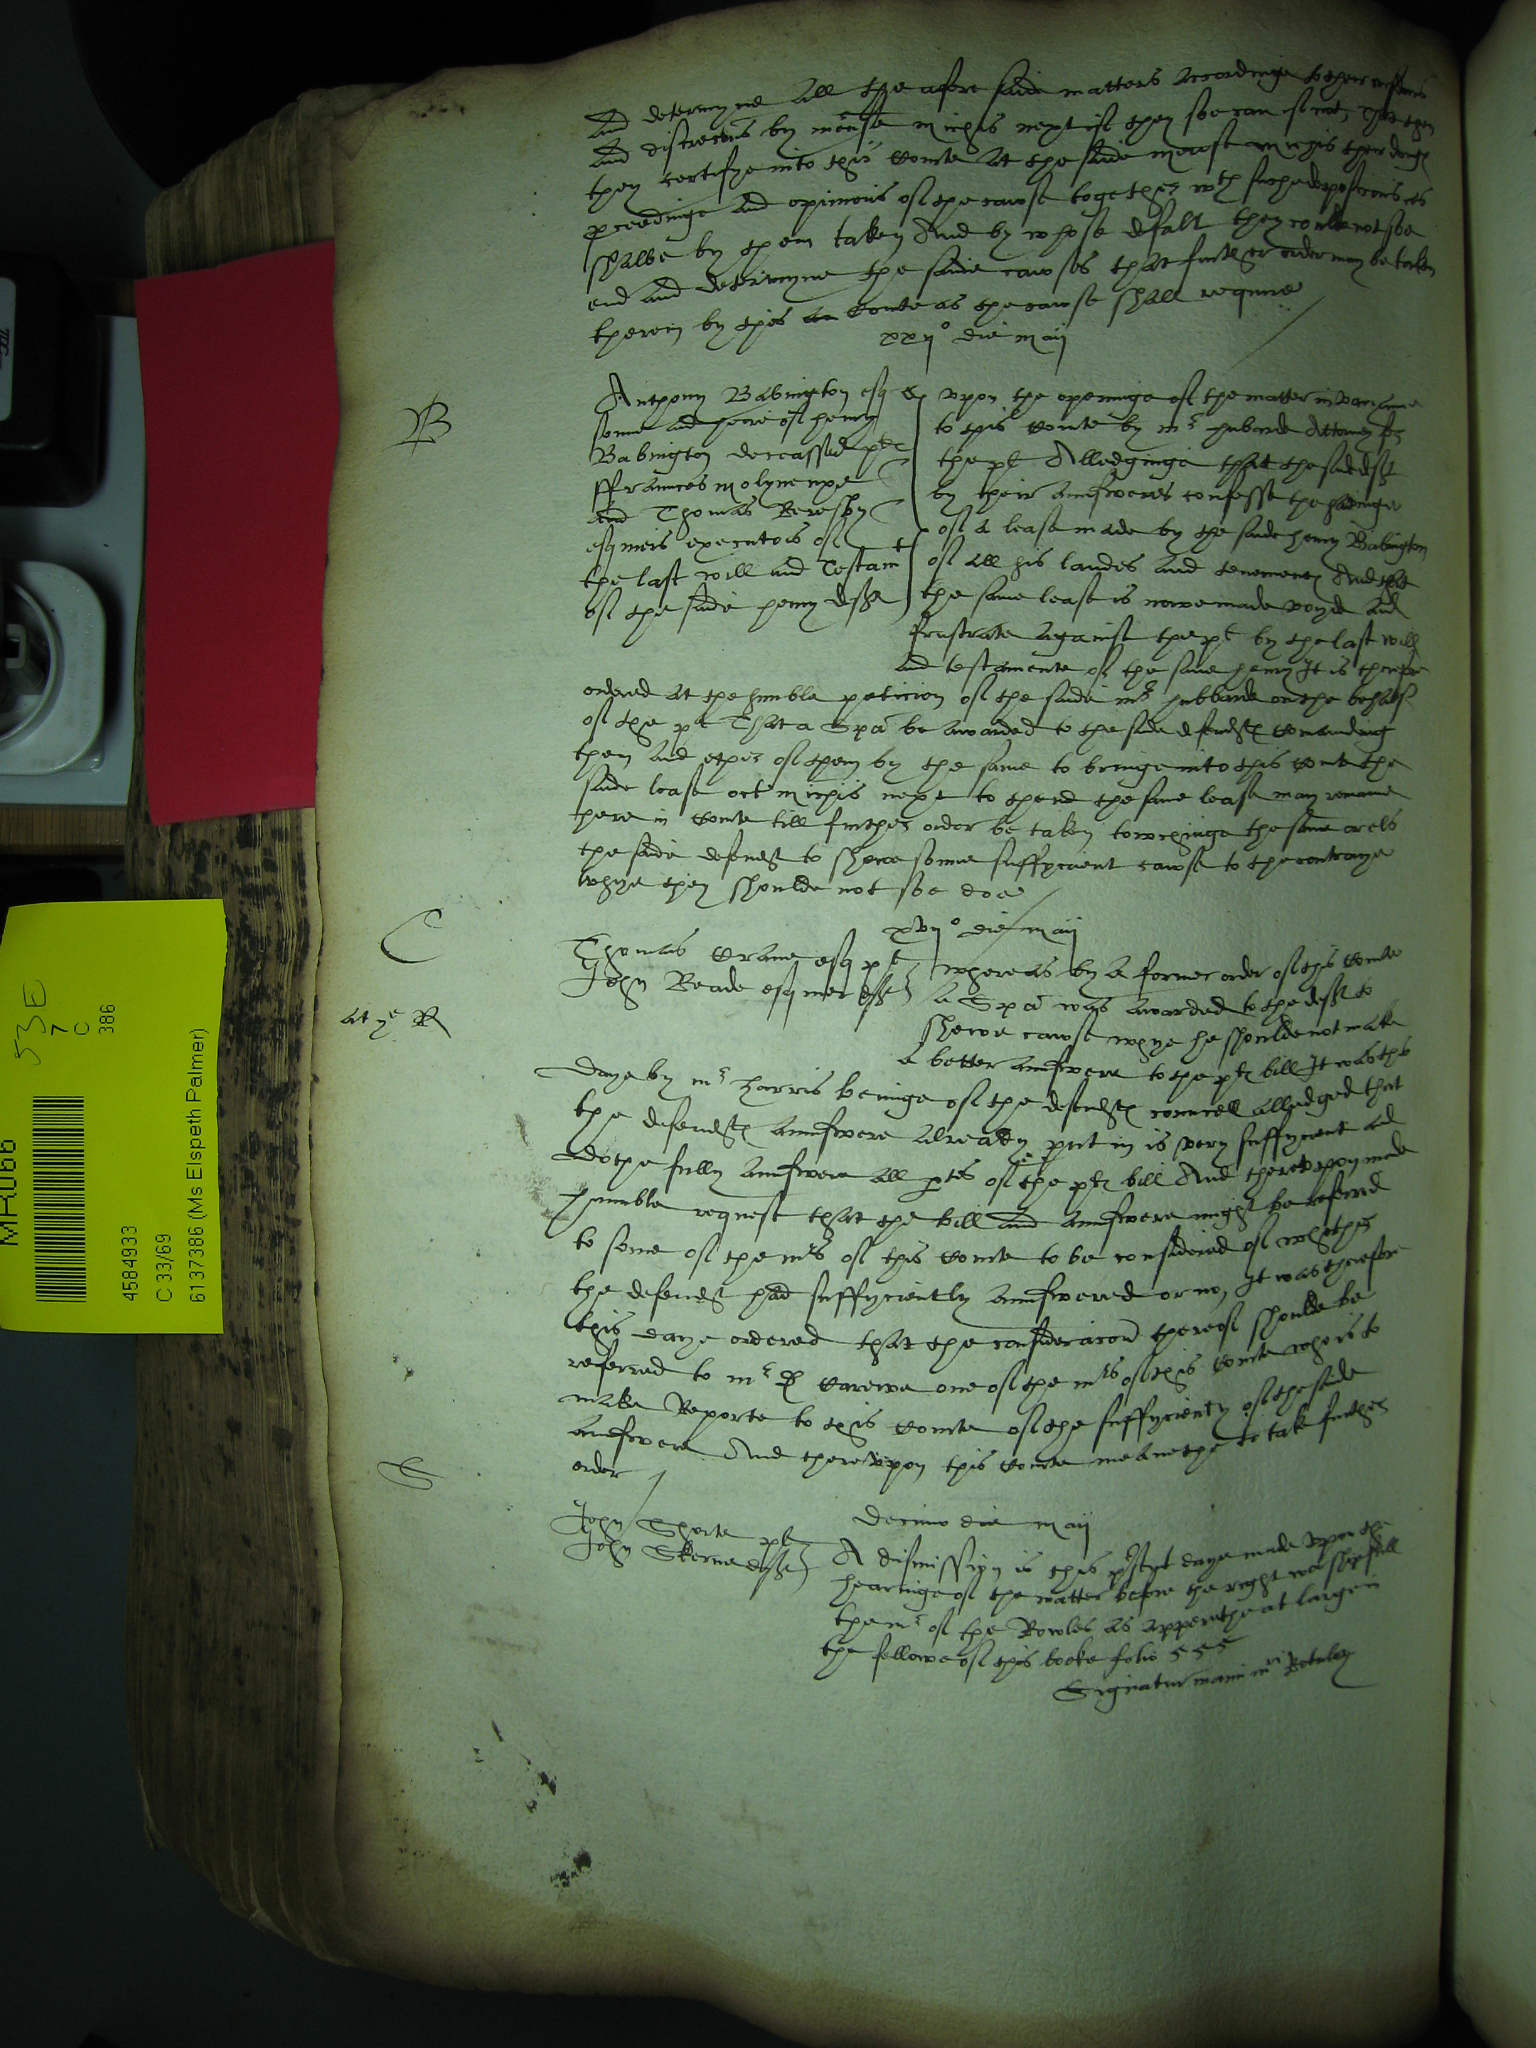 and determyne all the afore saide matters accordinge to their
and discrecons by mense michis next if they soe can if not, that then
they certifye into this Courte at the saide mense michis their
pceedinge and opinions of the cawse together wth suche deposicons as
shalbe by them taken And by whose defalt they coulde not soe
end and determyne the saide cawses that further order may be taken
therein by this Courte as the cawse shall require
xxijo die maij
B
Anthony Babington esq
sonne and heire of henry
Babington deceassed plt
ffraunces molynexe
and Thomas Beresby
esquiers executors of
the last will and Testamt
of the saide henry defts
vpon the openinge of the matter in variaunce
to this Courte by mr hubarde Attorney for
the plt Alledginge that the said deft
by their aunsweres confesse the havinge
of a lease made by the saide henry Babington
of all his landes and tenements And that
the same lease is nowe made voyde and
frustrate against the plt by the last will
and testamente of the same henry It is therefore
ordered at the humble peticion of the saide mr hubbarde on the behalf
of the plt That a Spa be awarded to the saide defendts Comaunding
them and ether of them by the same to bringe into this Courte the
saide lease oct michis next to thend the same lease may remaine
here in Courte till further order be taken towchinge the same or els
the saide defendt to shewe some suffycient cawse to the contrarye
whye they shoulde not soe doe
xvijo die maij
C
Thomas Crane esq plt
John Reade esquier deft
at ye R
whereas by a former order of this Courte
a Spa was awarded to the deft to
shewe cawse whye he shoulde not make
a better aunswere to the plts bill It was this
daye by mr harris beinge of the defendts councell alledged that
the defendts aunswere already put in is very suffycient and
dothe fully aunswere all ptes of the plts bill And therevpon made
humble request that the bill and aunswere might be referred
to some of the mrs of this Courte to be considered of whether
the defendt had suffyciently aunswered or no, It was therefore
this daye ordered that the consideracon thereof shoulde be
referred to mr D Carewe one of the mrs of this Courte who is to
make Reporte to this Courte of the suffyciency of the saide
aunswere And therevpon this Courte meanethe to take further
order
S
decimo die maij
John Shorte plt
John Skerne deft
A dismission is this pesent daye made vpon the
hearinge of the matter before the right worshipfull
the mr of the Rowles as apperethe at large in
the fellowe of this booke folio 555
Signatur manu mri
MR066
53E
7
C
386
4584933
C 33/69
6137386 (Ms Elspeth Palmer)